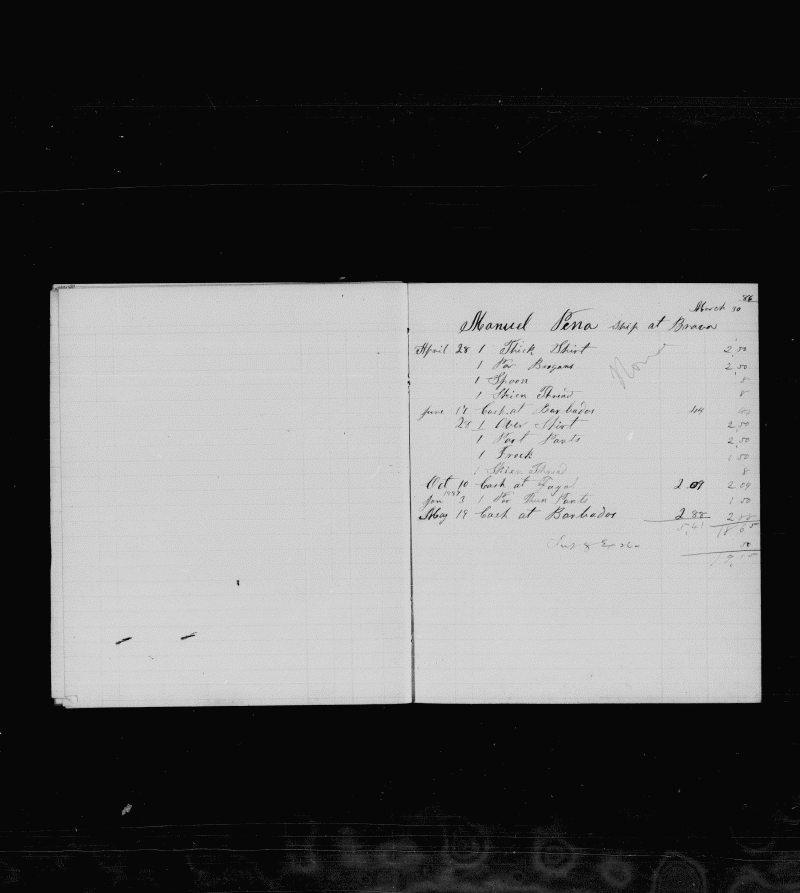 86
March 30
Manuel Pena ship at Brava
April 28 1 Thick Shirt 2.50
1 Par Brogans 2.50
1 Spoon 8
1 Skien Thread 8
June 17 Cash at Barbados 44 44
29 1 Over Shirt 2.50
1 Par Pants 2.50
1 Frock 1 50
1 Skien Thread 8
Oct 10 Cash at Fayal 2.09 2 09
Jan 3 1 Par Thin Pants 1 50
May 19 Cash at Barbados 2 88 2 88
5.41 18 65
50